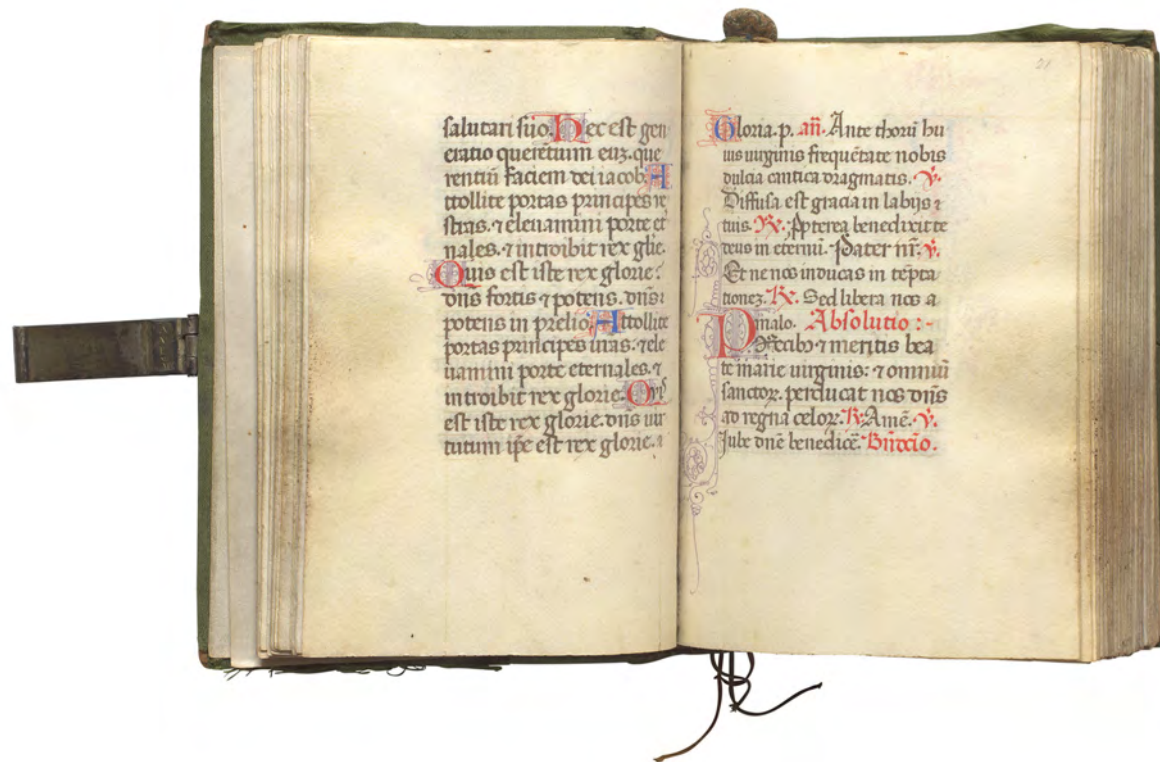 salutari suo. Hec est gen
eratio querētium euz. que
rentiū faciem dei iacob. A
ttollite portas principes ve
stras. ⁊ eleuamini porte et
nales. ⁊ introibit rex glīe.
Quis est iste rex glorie:
dn̄s fortis ⁊ potens. dn̄s
potens in prelio. Attollite
portas principes vr̄as. ⁊ ele
uamini porte eternales. ⁊
introibit rex glorie. Qui
est iste rex glorie. dn̄s uir
tutum ip̄e est rex glorie.
21
Gloria. p. an̄. Ante thorū hu
ius uirginis frequētate nobis
dulcia cantica dragmatis. ℣.
Diffusa est gracia in labijs
tuis. ℟. Ꝓpterea benedixit te
deus in eternū. Pater nr̄. ℣.
Et ne nos inducas in tēpta
tionez. ℟. Sed libera nos a
malo. Absolutio :-
Precibꝰ ⁊ meritis bea
te marie uirginis: ⁊ omniū
sanctoꝝ. perducat nos dn̄s
ad regna celoꝝ. ℟. Amē. ℣.
Jube dn̄e benedicē. Bn̄dictio.